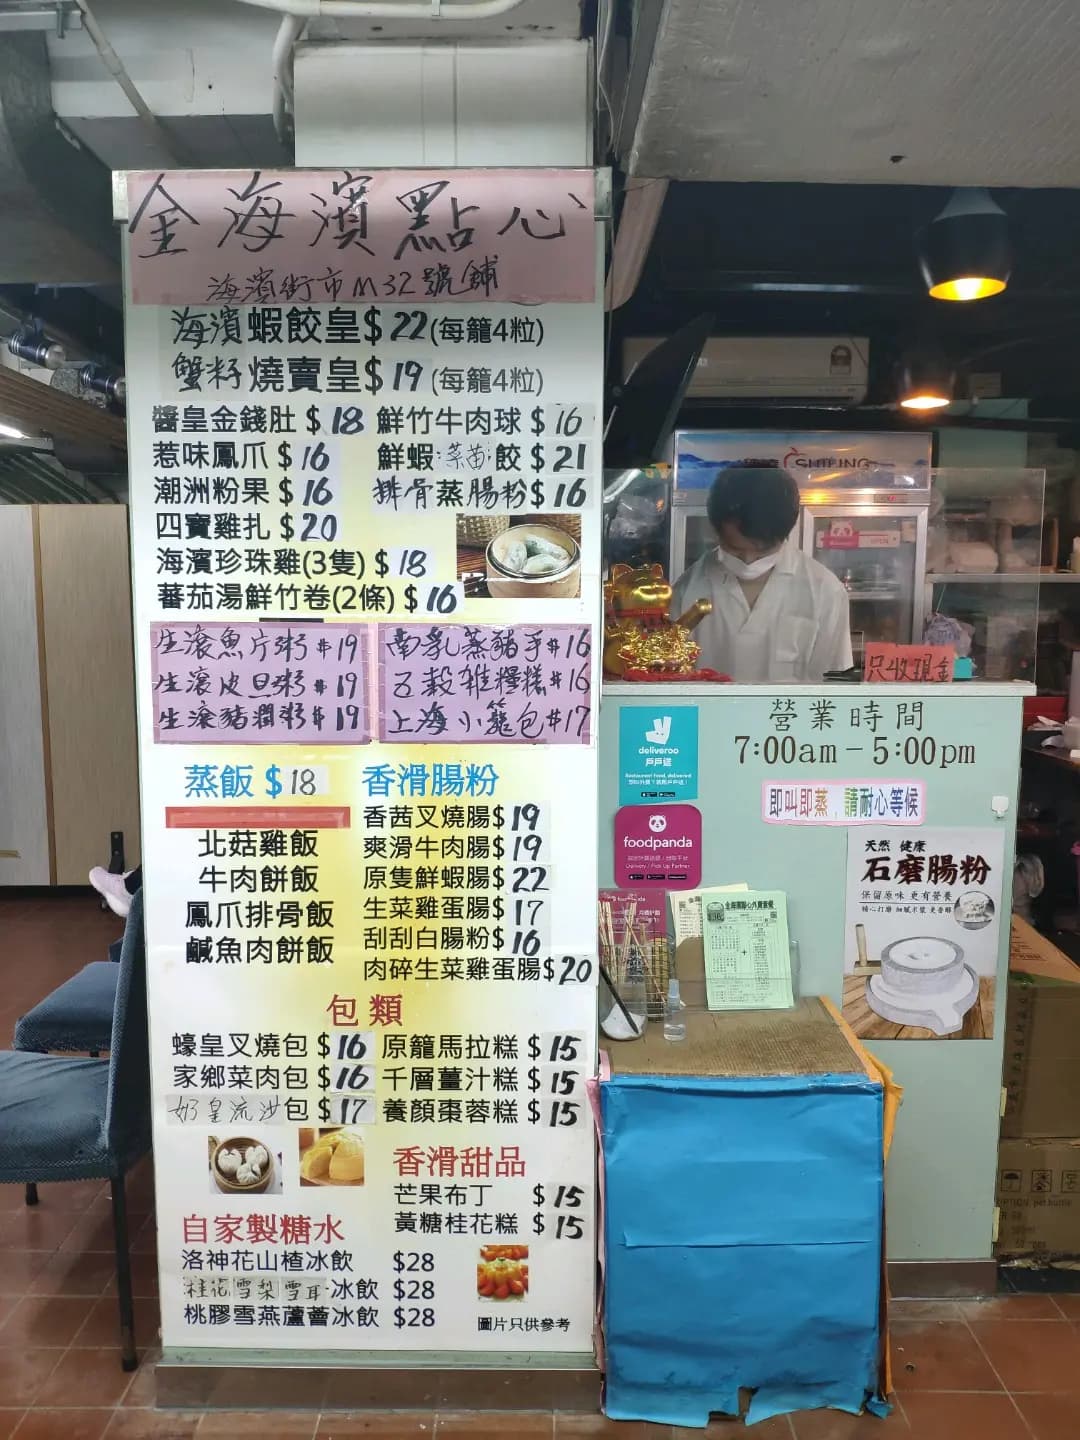 金海濱點心
海濱街市M32號舖
海濱蝦餃皇$22(每籠4粒)
蟹籽燒賣皇$19(每籠4粒)
醬皇金錢肚$18
惹味鳳爪$16
潮洲粉果$16
四寶雞扎$20
海濱珍珠雞(3隻)$18
蕃茄湯鮮竹卷(2條)$16
鮮竹牛肉球$16
鮮蝦菜苗餃$21
排骨蒸腸粉$16
生滾魚片粥$19
生滾皮旦粥$19
生滾豬潤粥$19
南乳蒸豬手$16
五穀雜糧糕$16
上海小籠包$17
蒸飯$18
北菇雞飯
牛肉餅飯
鳳爪排骨飯
鹹魚肉餅飯
香滑腸粉
香茜叉燒腸$19
爽滑牛肉腸$19
原隻鮮蝦腸$22
生菜雞蛋腸$17
刮刮白腸粉$16
肉碎生菜雞蛋腸$20
包類
蠔皇叉燒包$16
家鄉菜肉包$16
奶皇流沙包$17
原籠馬拉糕$15
千層薑汁糕$15
養顏棗蓉糕$15
香滑甜品
芒果布丁 $15
黃糖桂花糕$15
自家製糖水
洛神花山楂冰飲 $28
桂花雪梨雪耳冰飲 $28
桃膠雪燕蘆薈冰飲 $28
圖片只供參考
SHILING
只收現金
營業時間
7:00am-5:00pm
即叫即蒸,請耐心等候
deliveroo
戶戶送
foodpanda
天然 健康
石磨腸粉
保留原味 更有營養